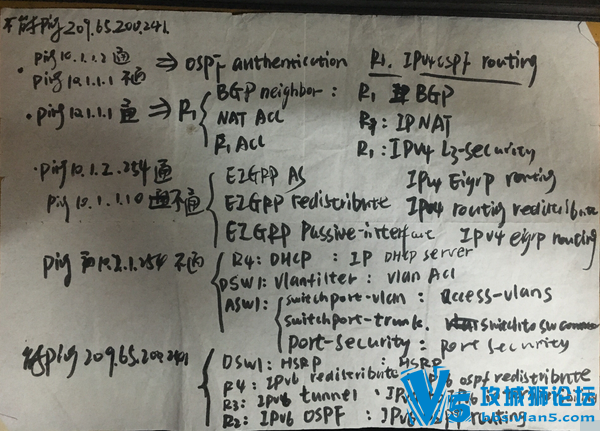 不能ping 209.65.200.241.
· ping 10.1.1.2 通 ⇒ OSPF authentication R1. IPv4 OSPF routing
ping 10.1.1.1 不通
· ping 10.1.1.1 通 ⇒ R1 { BGP neighbor: R1 BGP
NAT Acl R1: IP NAT
R1 Acl R1: IPv4 L3-security
ping 10.1.2.254 通 EZGRP AS IPv4 Eigrp routing
ping 10.1.1.10 不通 EZGRP redistribute IPv4 routing redistribute
EZGRP Passive-interface IPv4 eigrp routing
ping 10.2.1.254 不通 R4: DHCP : IP DHCP server
DSW1: Vlanfilter: Vlan Acl
ASW1: { switchport-vlan: access-vlans
switchport-trunk. switch to sw
port-security: Port security
能ping 209.65.200.241 DSW1: HSRP : HSRP
R4: IPv6 redistribute ospf redistribute
R3: IPv6 tunnel :
R2: IPv6 OSPF : IPv6 routing
攻城狮论坛
bbs.vlan5.com